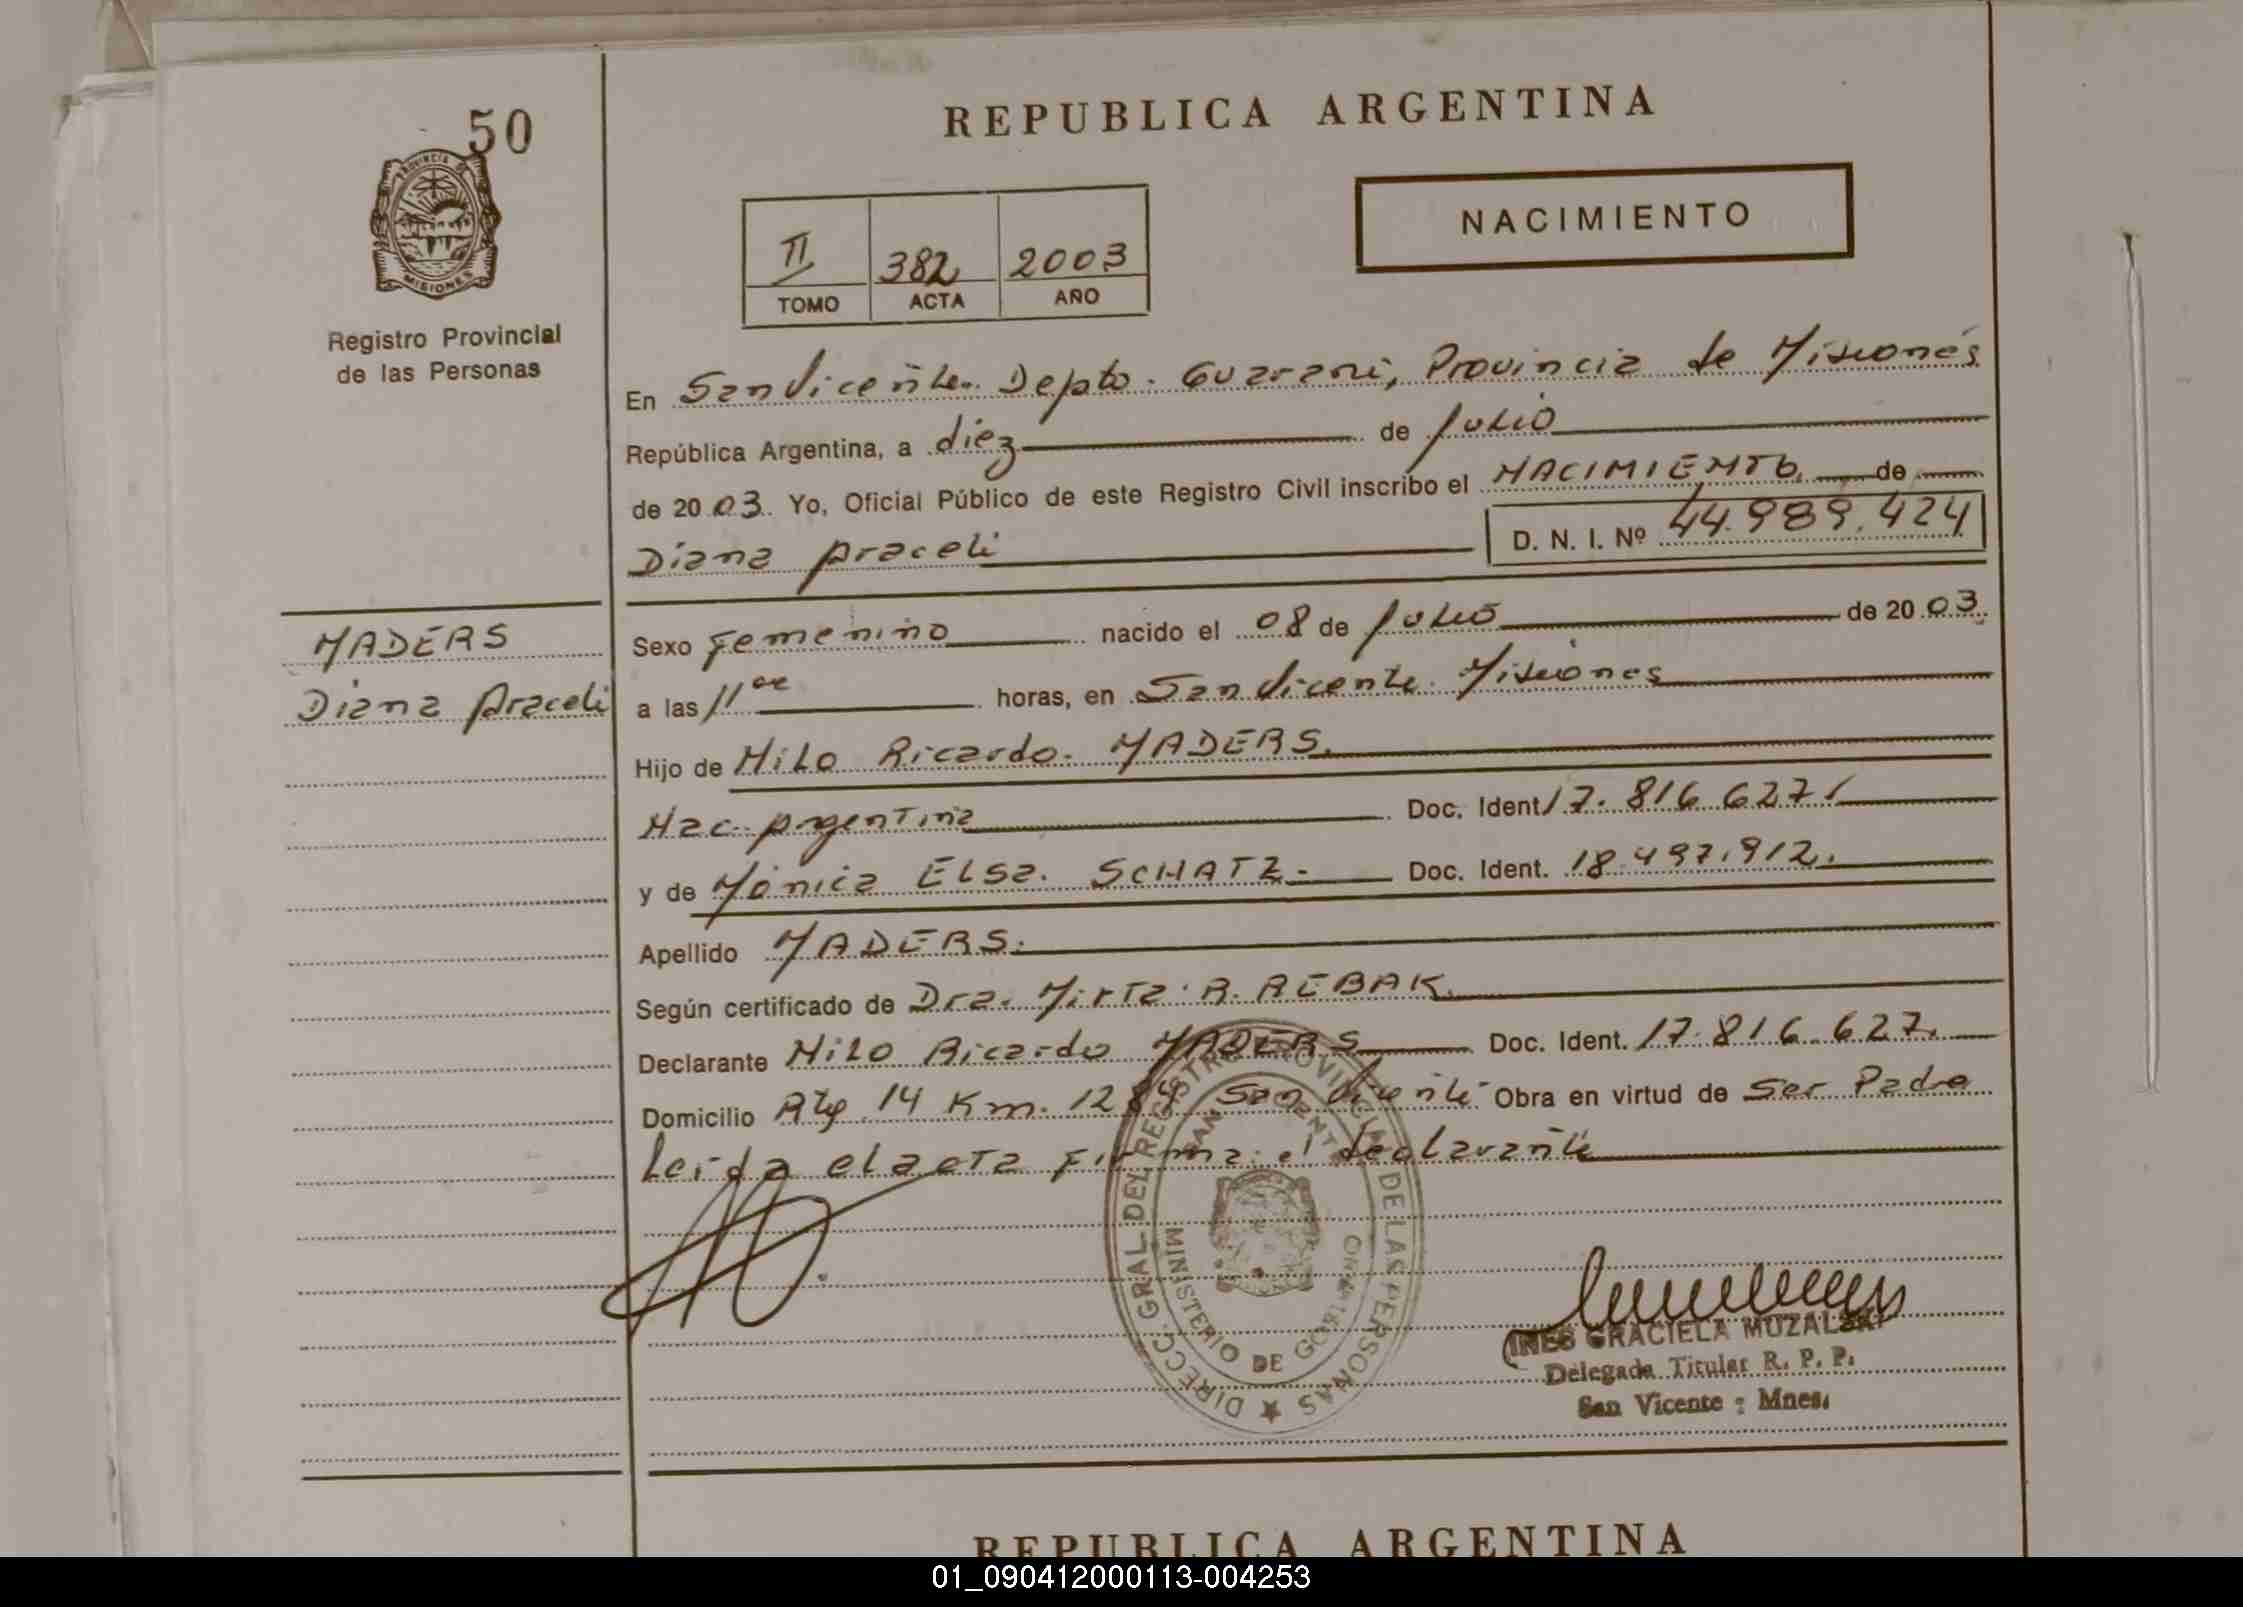 50
PROVINCIA DE
MISIONES
Registro Provincial
de las Personas
REPUBLICA ARGENTINA
II 382 2003
TOMO ACTA AÑO
NACIMIENTO
En San Vicente. Depto. Guarani, Provincia de Misiones
República Argentina, a diez de Julio
de 2003. Yo, Oficial Público de este Registro Civil inscribo el NACIMIENTO de
Diana Araceli D. N. I. Nº 44.989.424
MADERS
Diana Araceli
Sexo Femenino nacido el 08 de Julio de 2003.
a las 11 horas, en San Vicente. Misiones
Hijo de Milo Ricardo. MADERS.
Nac. Argentina Doc. Ident 17.816 627
y de Mónica Elsa. SCHATZ.- Doc. Ident. 18.497.912.
Apellido MADERS.
Según certificado de Dra. Mirta. R. REBAK.
Declarante Milo Ricardo MADERS Doc. Ident. 17.816.627.
Domicilio Rta 14 Km. 1284 San Vicente Obra en virtud de Ser Padre
Leida el acta firma el declarante
DIRECC. GRAL. DEL REGISTRO PROVINCIAL DE LAS PERSONAS
SAN VICENTE
MINISTERIO DE GOBIERNO
INES GRACIELA MUZALSKI
Delegada Titular R. P. P.
San Vicente - Mnes.
REPUBLICA ARGENTINA
01_090412000113-004253